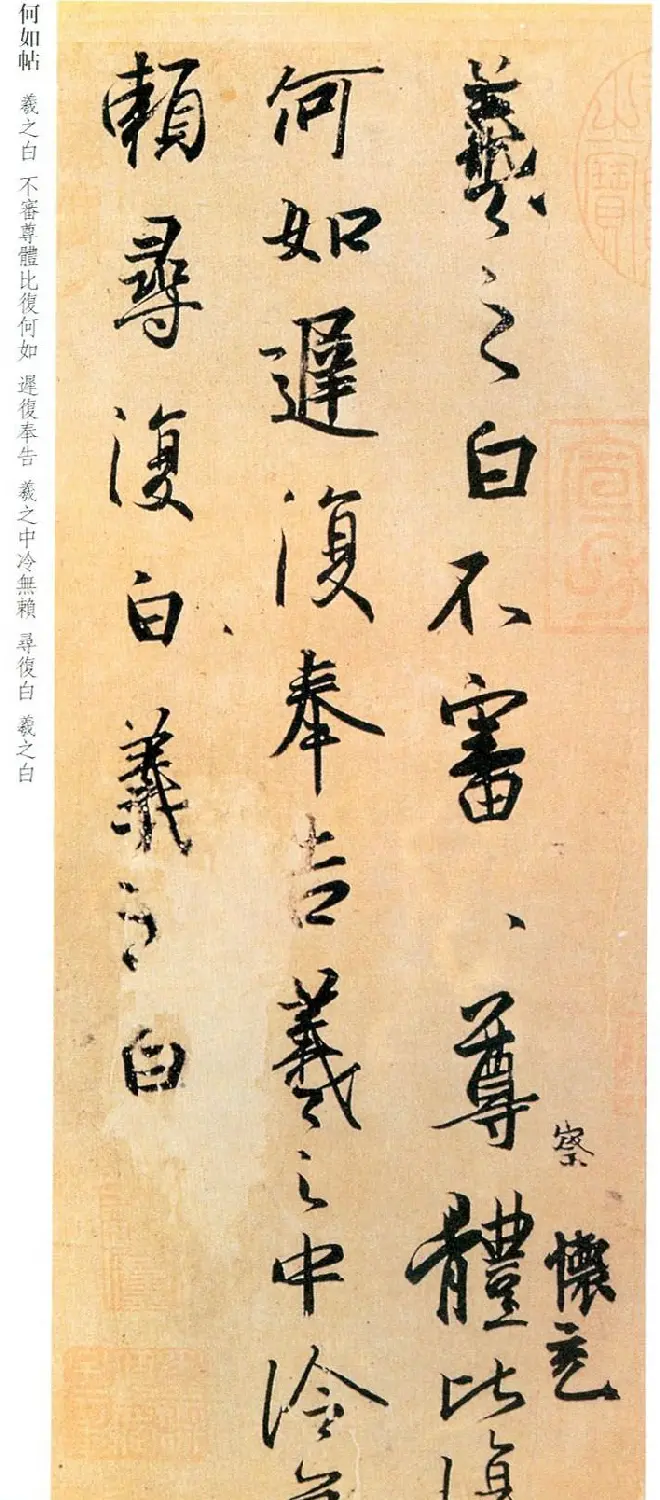 羲之白不審尊體比復
何如遲復奉告羲之中冷無
賴尋復白羲之白
察
懷充
何如帖 羲之白 不審尊體比復何如 遲復奉告 羲之中冷無賴 尋復白 羲之白